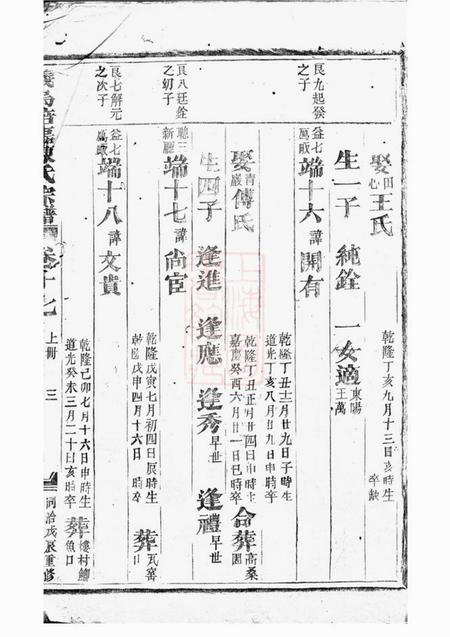 娶田心王氏 乾隆丁亥九月十三日亥時生 卒缺
生一子 純銓 一女適東陽王萬
艮九起癸之子
益七萬畈端十六諱開有 乾隆丁丑十二月廿九日子時生 道光丁亥八月廿九日申時卒
娶青巖傅氏 乾隆丁丑正月廿四日申時生 嘉慶癸酉六月廿一日巳時卒 合葬高桑園
生四子 逢進 逢應 逢秀早世 逢禮早世
艮八廷銓之幼子
聰三新廳端十七諱尚宦 乾隆戊寅七月初四日辰時生 乾隆戊申四月十六日 時卒 葬瓦窰口
艮七解元之次子
益七萬畈端十八諱文貴 乾隆己卯七月十六日申時生 道光癸未三月二十日亥時卒 葬樓村鯽魚口
陳氏宗譜 卷十七 上冊 三 同治戊辰重修